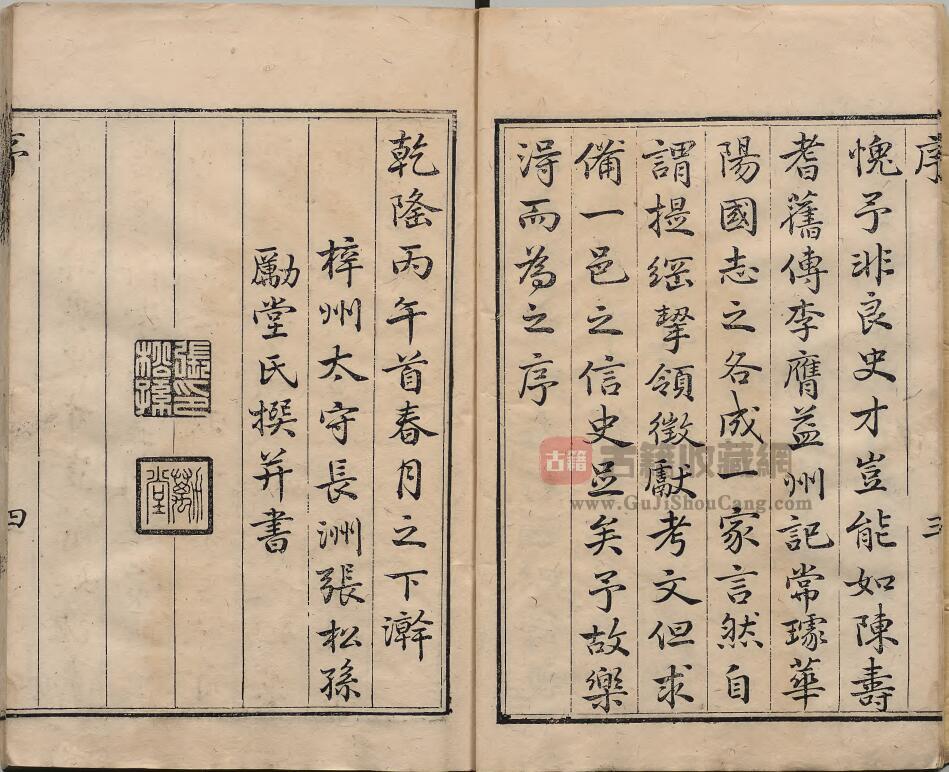 序
愧予非良史才豈能如陳壽
耆舊傳李膺益州記常璩華
陽國志之各成一家言然自
謂提綱挈領徵獻考文但求
備一邑之信史足矣予故樂
淂而為之序
三
乾隆丙午首春月之下澣
梓州太守長洲張松孫
勵堂氏撰并書
張印
松孫
勵
堂
序
四
古籍
古籍收藏網
www.GuJiShouCang.com